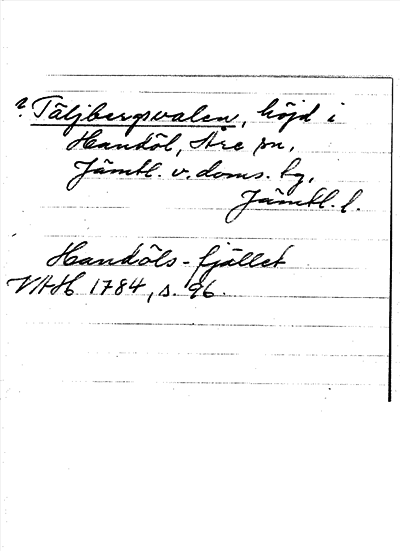 ? Täljbergsvalen, höjd i
Handöl, Åre sn,
Jämtl. v. doms. hg,
Jämtl. l.
Handöls-fjället
VAH 1784, s. 96.